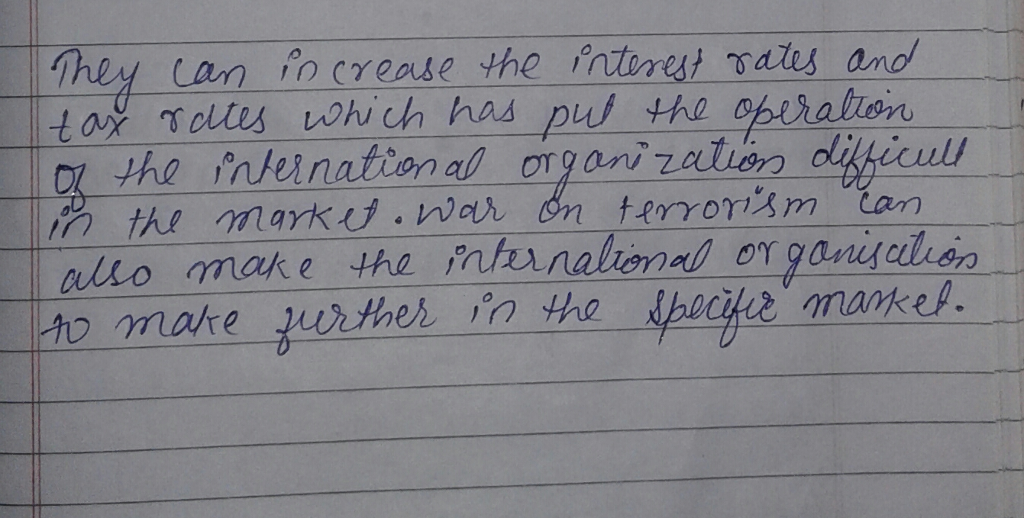 They can increase the interest rates and
tax rates which has put the operation
of the international organization difficult
in the market. war on terrorism can
also make the international organisation
to make further in the specific market.